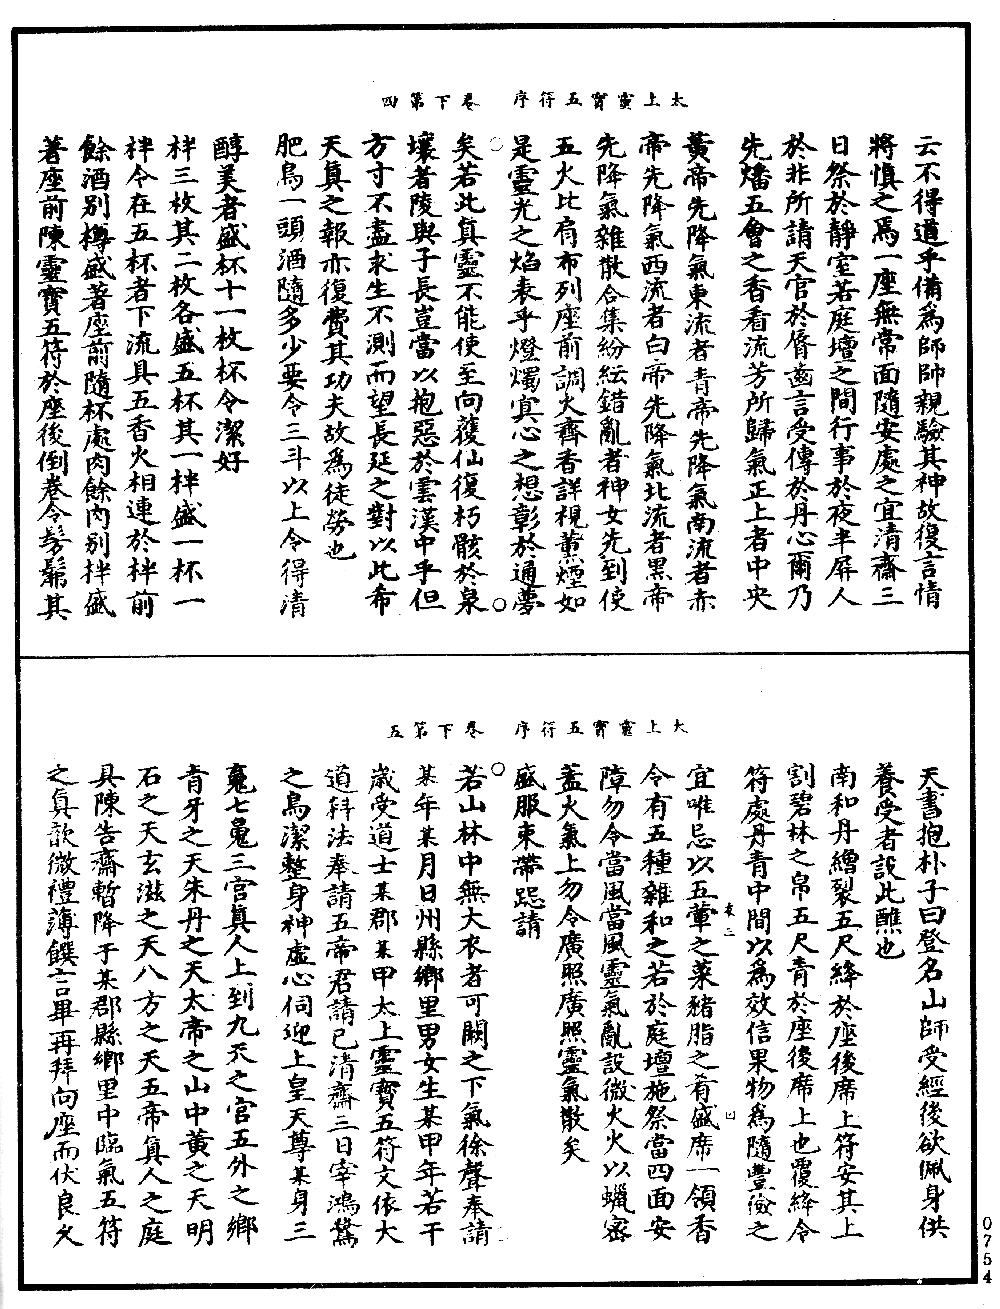 太上靈寶五符序　卷下第四
云不得道乎備爲師師親驗其神故復言情
將慎之焉一座無常面隨安處之宜清齋三
日祭於靜室若庭壇之間行事於夜半屏人
於非所請天官於脣齒言受傳於丹心爾乃
先燔五會之香看流芳所歸氣正上者中央
黃帝先降氣東流者青帝先降氣南流者赤
帝先降氣西流者白帝先降氣北流者黑帝
先降氣雜散合集紛紜錯亂者神女先到使
五火比肩布列座前調火齊香詳視薰煙如
是靈光之焰表乎燈燭寘心之想彰於通夢
矣若此真靈不能使至向蕧仙復朽骸於泉
壤者陵與子長豈當以抱惡於雲漢中乎但
方寸不盡求生不測而望長延之對以此希
天真之報亦復費其功夫故爲徒勞也
肥鳥一頭酒隨多少要令三斗以上令得清
醇美者盛杯十一枚杯令潔好
柈三枚其二枚各盛五杯其一柈盛一杯一
柈令在五杯者下流具五香火相連於柈前
餘酒別樽盛著座前隨杯處肉餘肉別柈盛
著座前陳靈寶五符於座後倒卷令髣髴其
太上靈寶五符序　卷下第五
天書抱朴子曰登名山師受經後欲佩身供
養受者設此醮也
南和丹繒裂五尺絳於座後席上符安其上
割碧林之帛五尺青於座後席上也覆絳令
符處丹青中間以爲效信果物爲隨豐儉之
宜唯忌以五葷之菜豬脂之肴盛席一領香
令有五種雜和之若於庭壇施祭當四面安
障勿令當風當風靈氣亂設微火火以蠟密
蓋火氣上勿令廣照廣照靈氣散矣
盛服束帶跽請
若山林中無大衣者可闕之下氣徐聲奉請
某年某月日州縣鄉里男女生某甲年若干
歲受道士某郡某甲太上靈寶五符文依大
道科法奉請五帝君請已清齋三日宰鴻鶩
之鳥潔整身神虛心伺迎上皇天尊某身三
䰟七魄三宮真人上到九天之宮五外之鄉
青牙之天朱丹之天太帝之山中黃之天明
石之天玄滋之天八方之天五帝真人之庭
具陳告齋暫降于某郡縣鄉里中臨氣五符
之真歆微禮薄饌言畢再拜向座而伏良久
袁二
四
0754